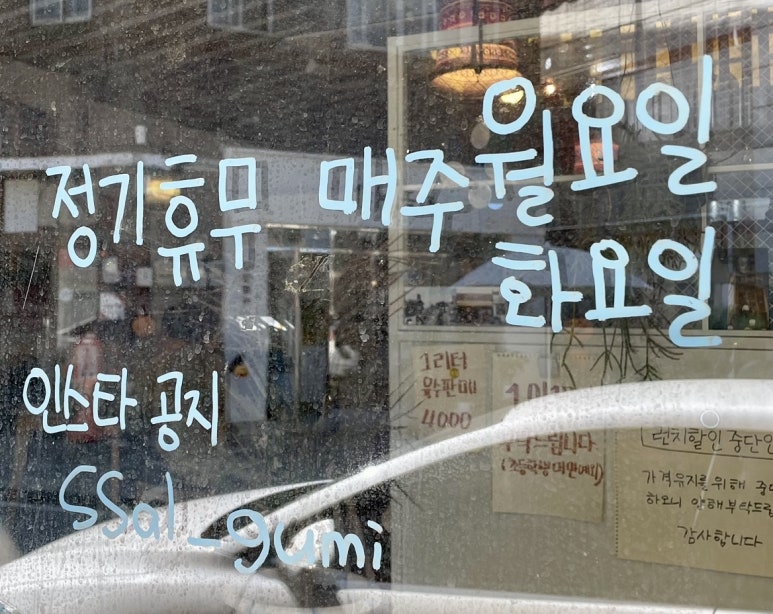 정기휴무 매주 월요일
화요일
인스타 공지
ssal_gumi
1리터
육수판매
4000
부탁드립니다
런치할인 중단안
가격유지를 위해
하오니 양해부탁드립
감사합니다